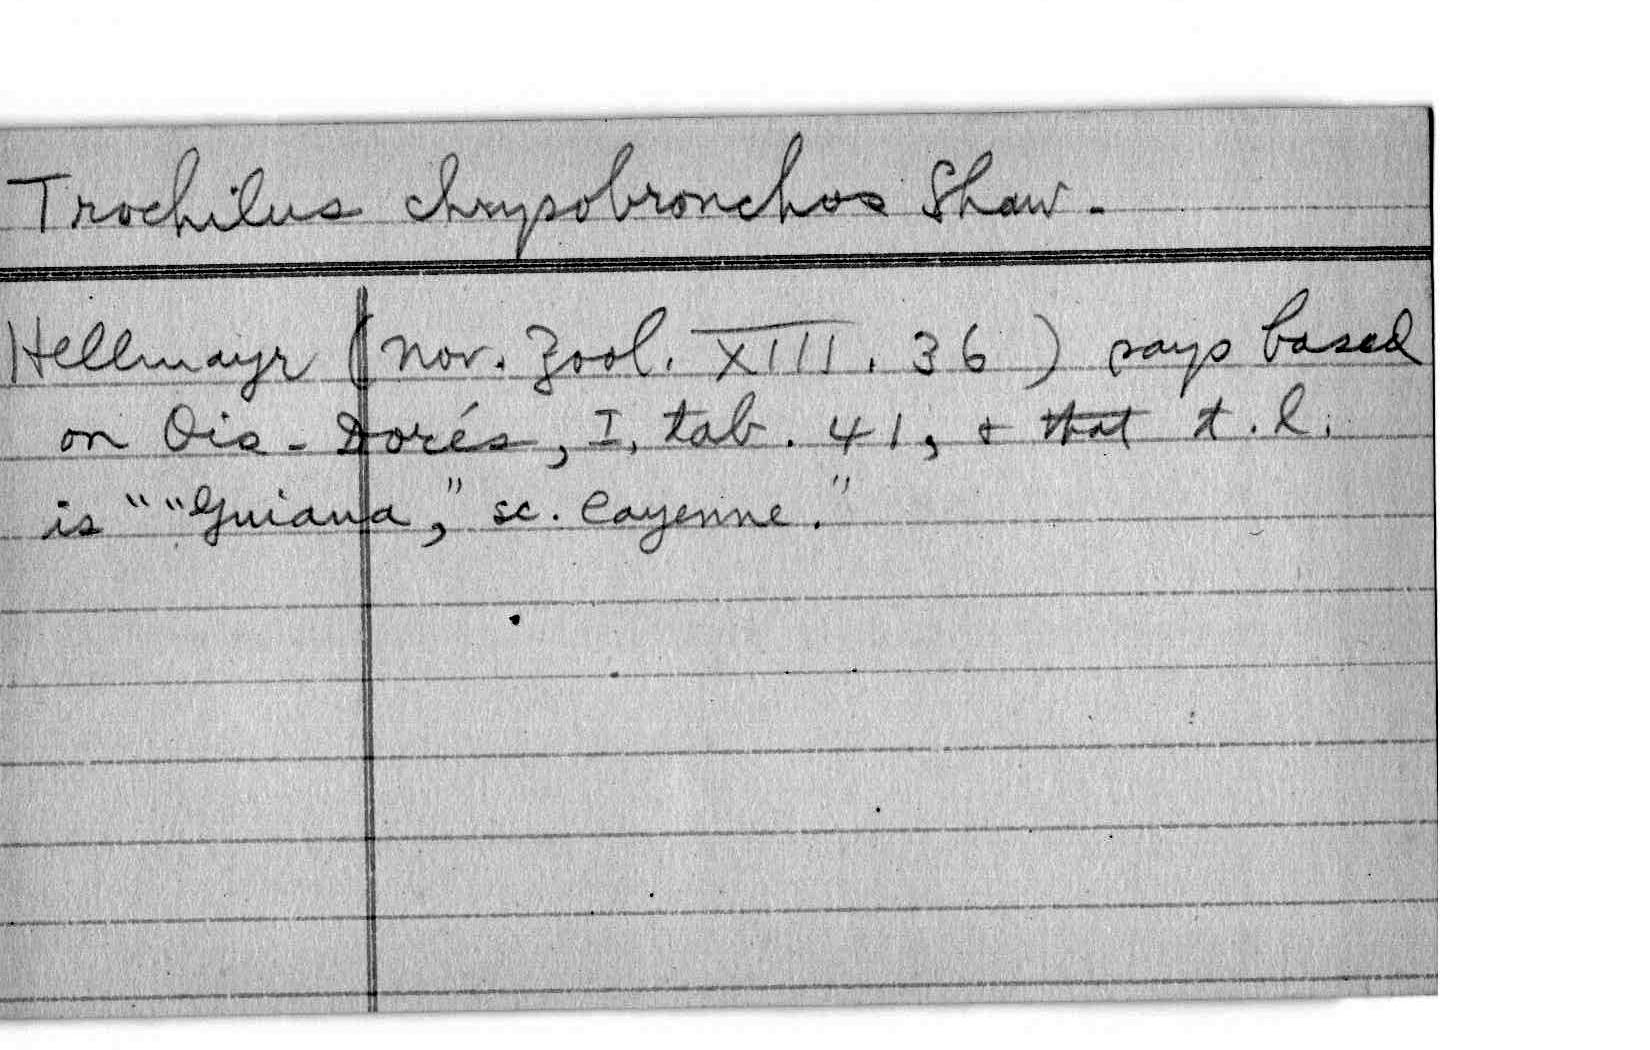 Trochilus chrysobronchos Shaw.
Hellmayr (Nov. Zool. XIII. 36) says based
on Ois-Dorés, I, tab. 41, + that t.l.
is "“Guiana,” sc. Cayenne."